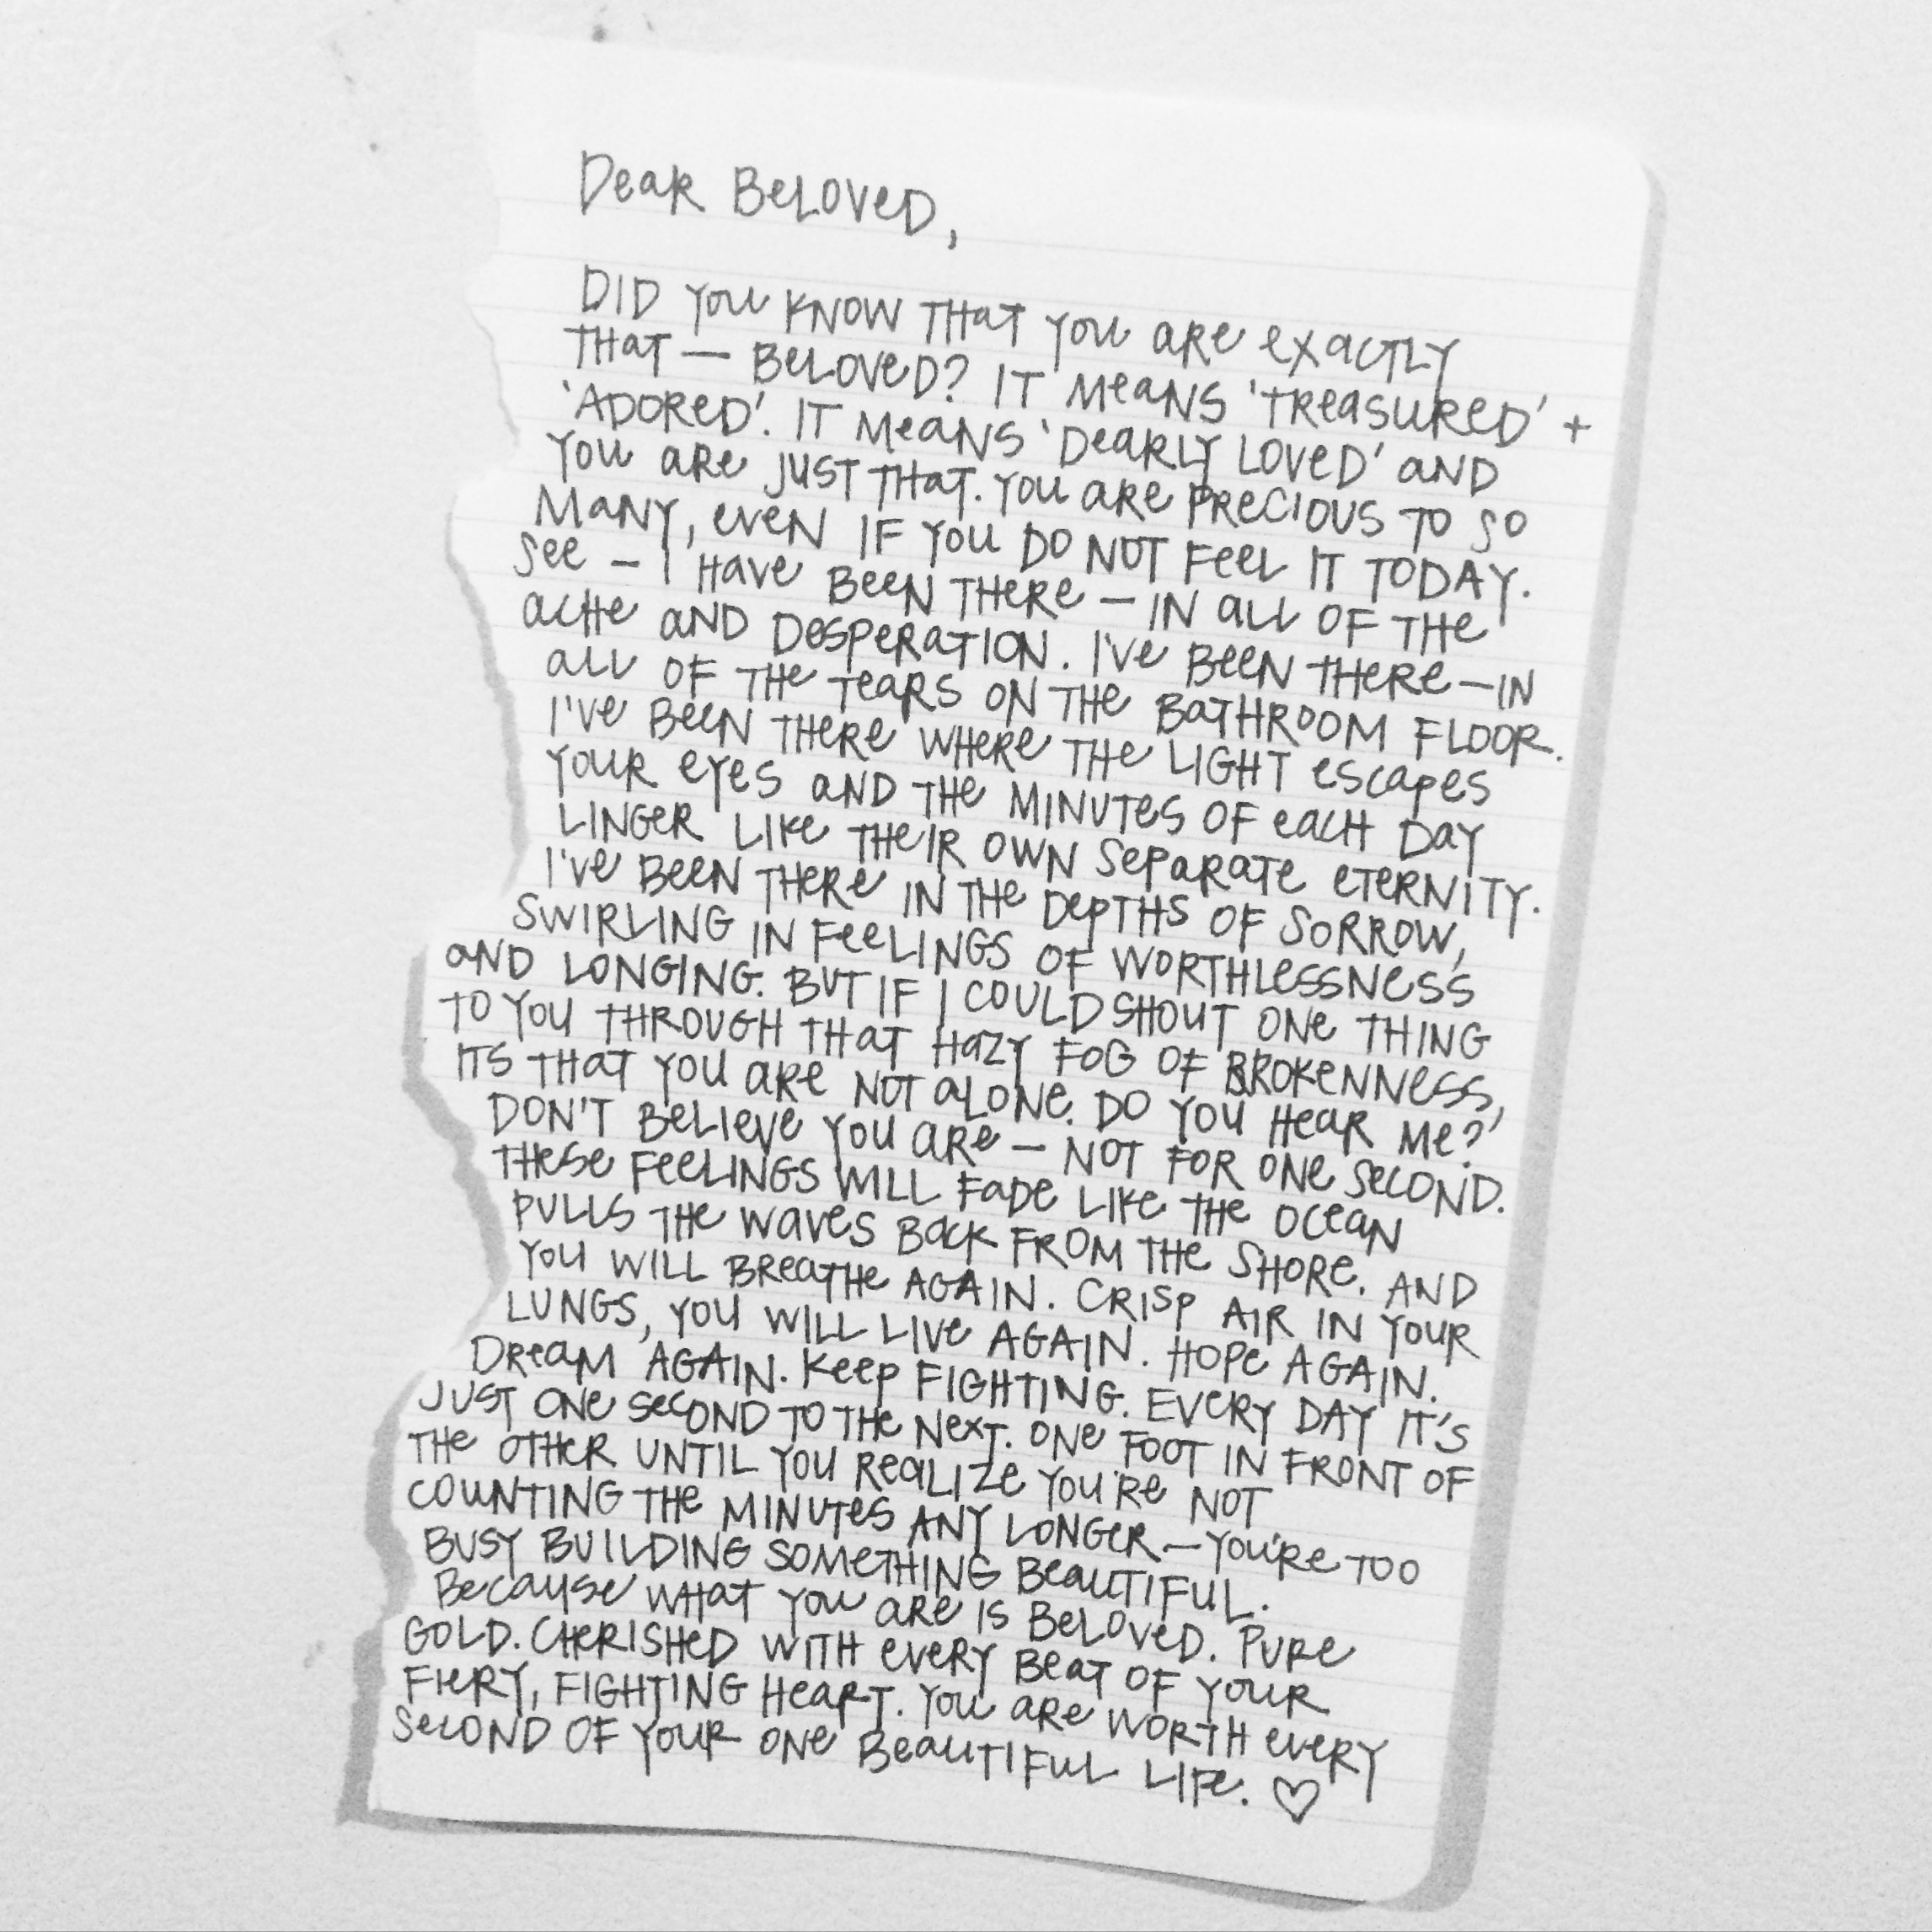 Dear Beloved,
DID you KNOW THAT you are exactly
THAT — Beloved? IT Means 'Treasured' +
'ADORED'. IT Means 'Dearly Loved' and
you are just that. You are precious to so
many, even if you do not feel it today.
See – I have been there – in all of the
ache and desperation. I've been there – in
all of the tears on the bathroom floor.
I've been there where the light escapes
your eyes and the minutes of each day
linger like their own separate eternity.
I've been there in the depths of sorrow,
swirling in feelings of worthlessness
and longing. But if I could shout one thing
to you through that hazy fog of brokenness,
its that you are not alone. Do you hear me?
Don't believe you are – not for one second.
These feelings will fade like the ocean
pulls the waves back from the shore. And
you will breathe again. Crisp air in your
lungs, you will live again. Hope again.
Dream again. Keep fighting. Every day it's
just one second to the next. One foot in front of
the other until you realize you're not
counting the minutes any longer – you're too
busy building something beautiful.
Because what you are is beloved. Pure
gold. Cherished with every beat of your
fiery, fighting heart. You are worth every
second of your one beautiful life. ♡